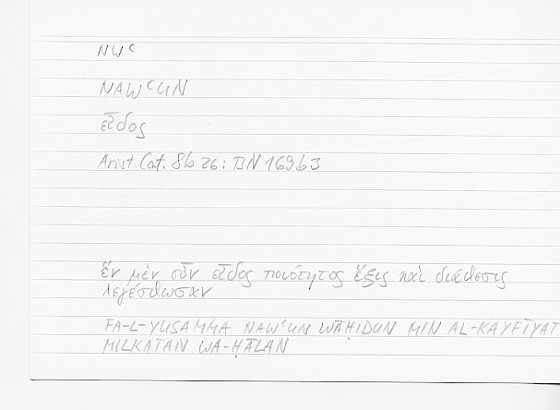 NWʿ
NAWʿUN
εἶδος
Arist. Cat. 8b 26 : BN 169b3
ἓν μὲν οὖν εἶδος ποιότητος ἕξις καὶ διάθεσις
λεγέσθωσαν
FA-L-YUSAMMA NAWʿUN WĀḤIDUN MIN AL-KAYFĪYAT
MILKATAN WA-ḤĀLAN